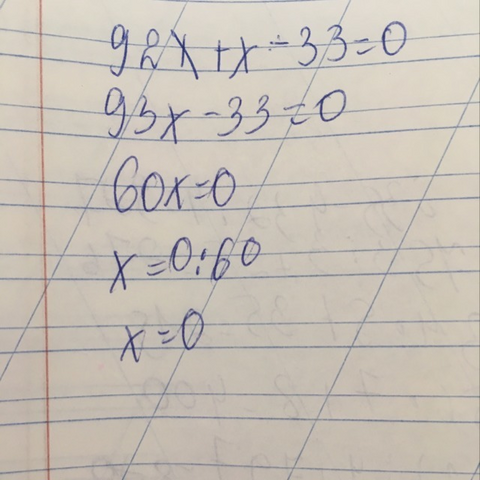 92x+x-33=0
93x-33=0
60x=0
x=0:60
x=0